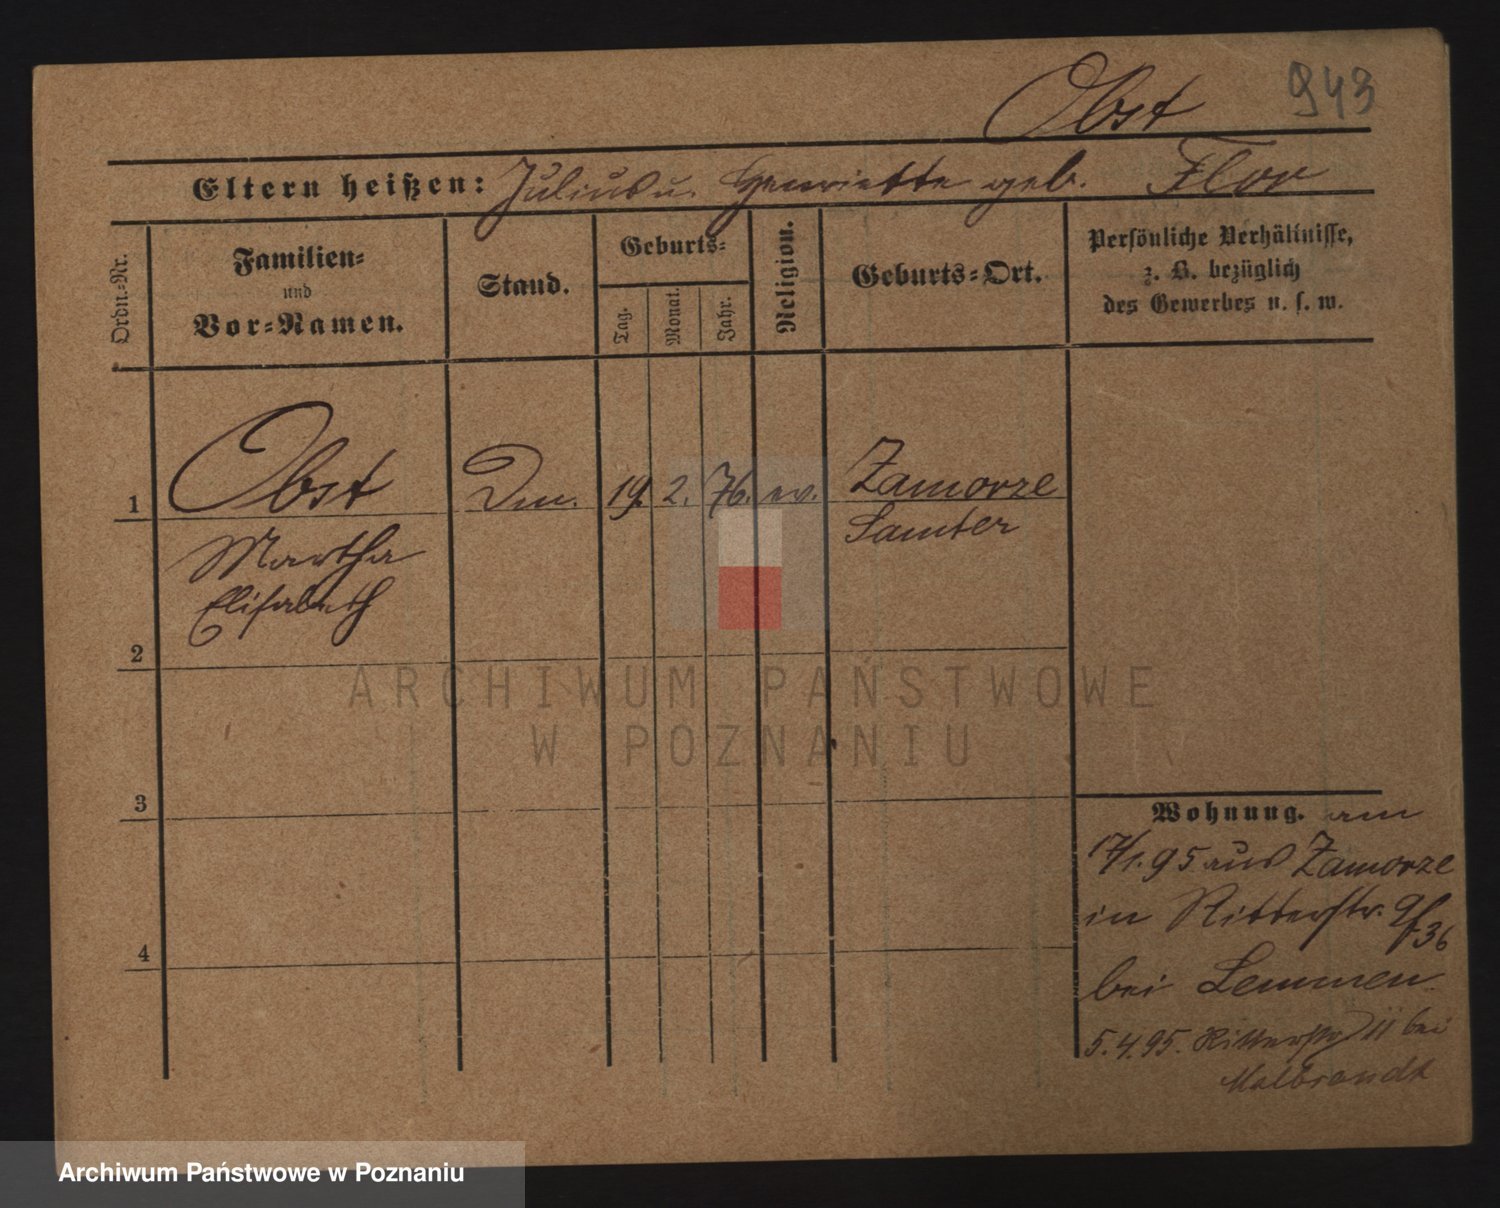 Obst 943
Eltern heißen: Julius u. Henriette geb. Flor
Ordn.-Nr.
Familien-
und
Vor-Namen.
Stand.
Geburts-
Tag.
Monat.
Jahr.
Religion.
Geburts-Ort.
Persönliche Verhältnisse,
z. B. bezüglich
des Gewerbes u. s. w.
1 Obst 19. 2. 76. ev. Zamorze
Martha Samter
Elisabeth
2
3
4
Wohnung. am
17/1.95 aus Zamorze
in Ritterstr. 36
bei Lemmen
5.4.95. Ritterstr 11 bei
Malbrandt
ARCHIWUM PAŃSTWOWE
W POZNANIU
Archiwum Państwowe w Poznaniu